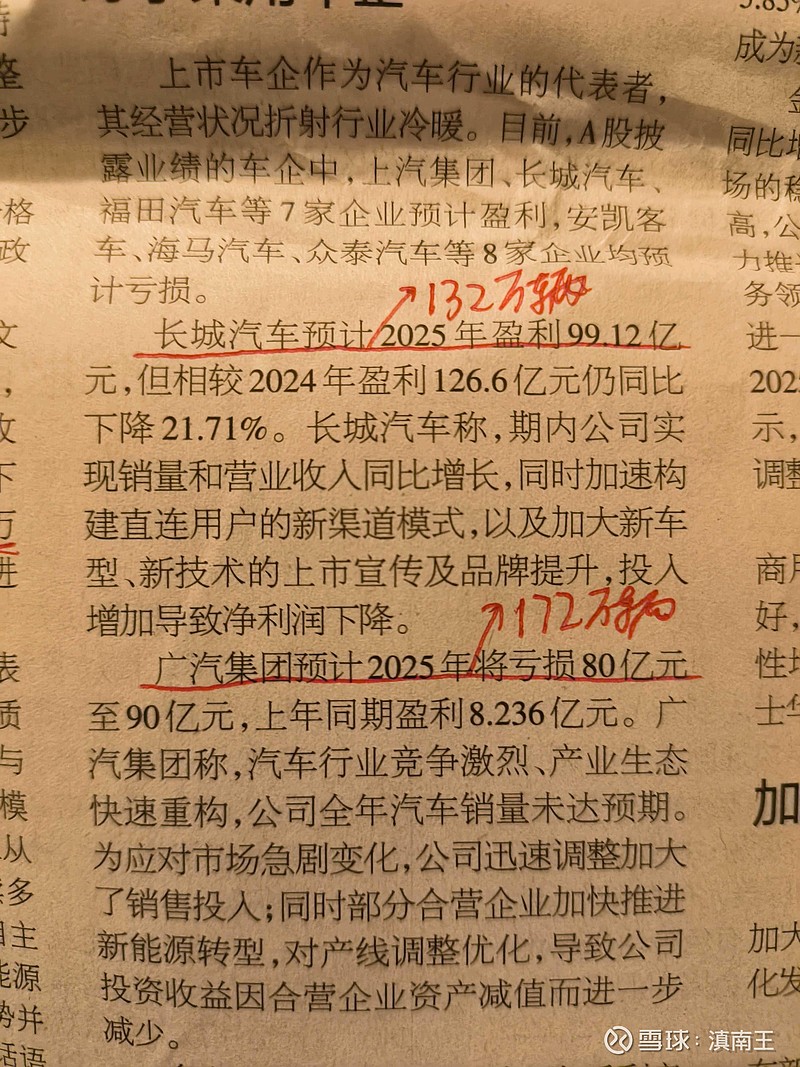 上市车企作为汽车行业的代表者，
其经营状况折射行业冷暖。目前，A股披
露业绩的车企中，上汽集团、长城汽车、
福田汽车等7家企业预计盈利，安凯客
车、海马汽车、众泰汽车等8家企业均预
计亏损。
132万辆
长城汽车预计2025年盈利99.12亿
元，但相较2024年盈利126.6亿元仍同比
下降21.71%。长城汽车称，期内公司实
现销量和营业收入同比增长，同时加速构
建直连用户的新渠道模式，以及加大新车
型、新技术的上市宣传及品牌提升，投入
增加导致净利润下降。
172万辆
广汽集团预计2025年将亏损80亿元
至90亿元，上年同期盈利8.236亿元。广
汽集团称，汽车行业竞争激烈、产业生态
快速重构，公司全年汽车销量未达预期。
为应对市场急剧变化，公司迅速调整加大
了销售投入；同时部分合营企业加快推进
新能源转型，对产线调整优化，导致公司
投资收益因合营企业资产减值而进一步
减少。
整
步
格
政
文
，
下
万
进
表
质
与
模
从
多
主
能源
势并
话语
5.85%
成为
同比增
场的稳
高，公
力推进
务领
进一
2025
示，
调整
商用
好，
性增
士华
加
加大
化发
雪球：滇南王